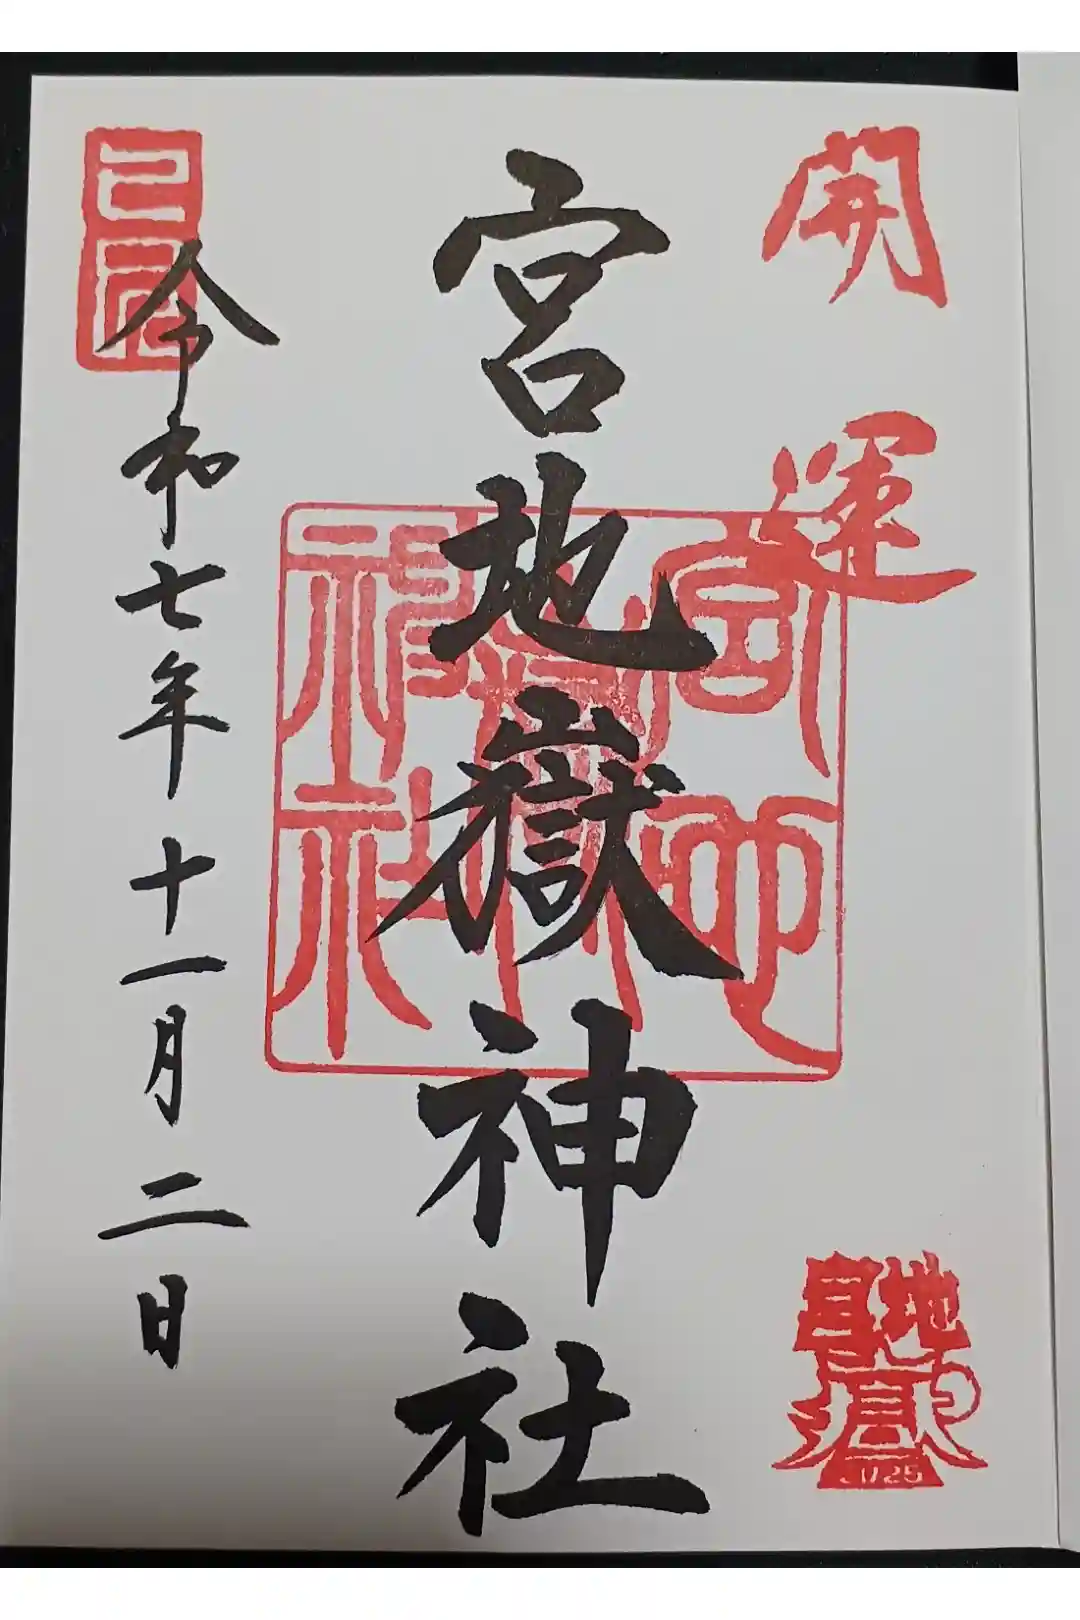 開運
宮地嶽神社
宮地嶽神社
宮地嶽
令和七年十一月二日